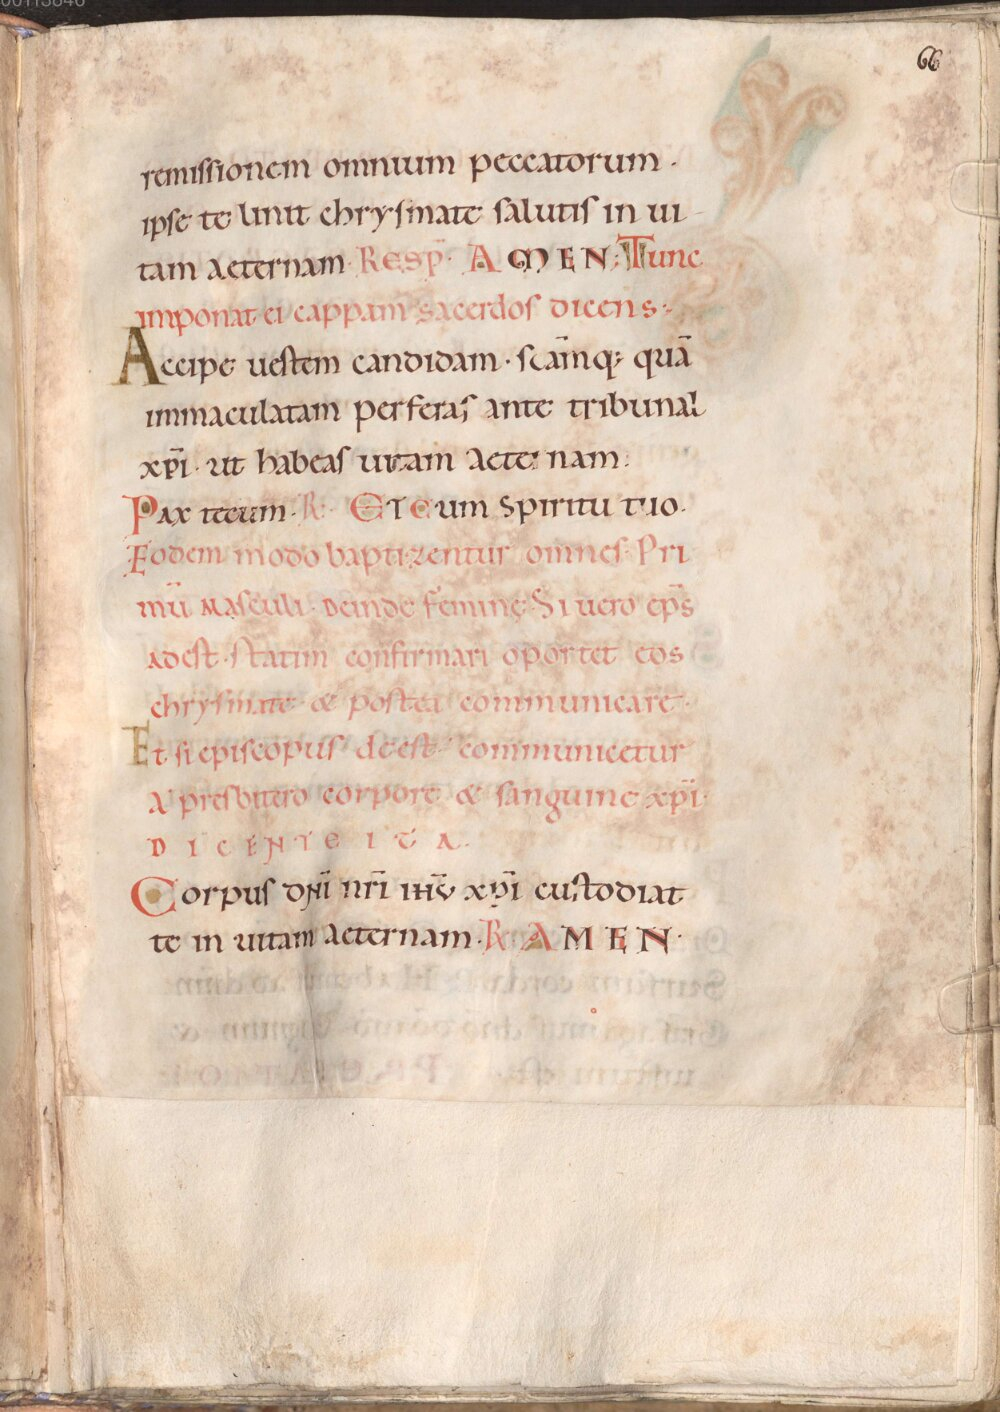 66
remissionem omnium peccatorum ·
ipse te linit chrysmate salutis in ui-
tam aeternam · RESP̄ · AMEN; Tunc
imponat ei cappam sacerdos dicens:·
Accipe uestem candidam · sc̄amq; quā
immaculatam perferas ante tribunal
xp̄i · ut habeas uitam aeternam:
Pax tecum · R̄ · ET Cum spiritu tuo ·
Eodem modo baptizentur omnes · Pri
mū masculi · deinde feminę · Si uero ep̄s
adest · statim confirmari oportet eos
chrysmate & postea communicare ·
Et si episcopus deest · communicetur
a presbitero corpore & sanguine xp̄i ·
DICENTE ITA ·
Corpus dn̄i nr̄i ihū xp̄i custodiat
te in uitam aeternam · R̄ AMEN ·